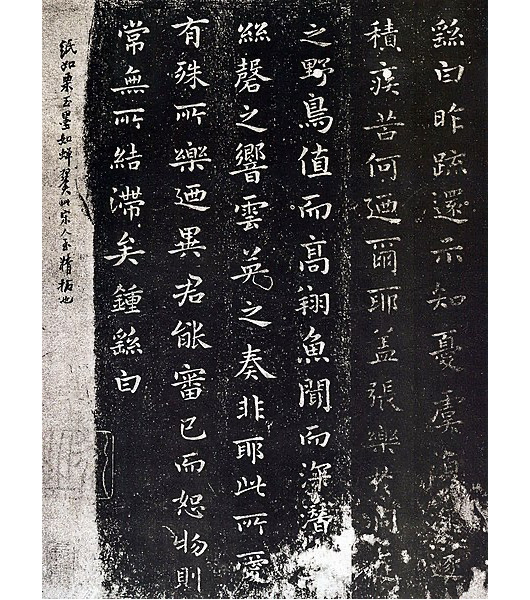 繇白昨疏還示知憂虞復深遂
積疾苦何迺爾耶盖張樂於洞庭
之野鳥值而高翔魚聞而深潛
絲磬之響雲英之奏非耶此所愛
有殊所樂迺異君能審己而恕物則
常無所結滯矣鍾繇白
紙如栗玉墨如蟬翼此宋人至精拓也